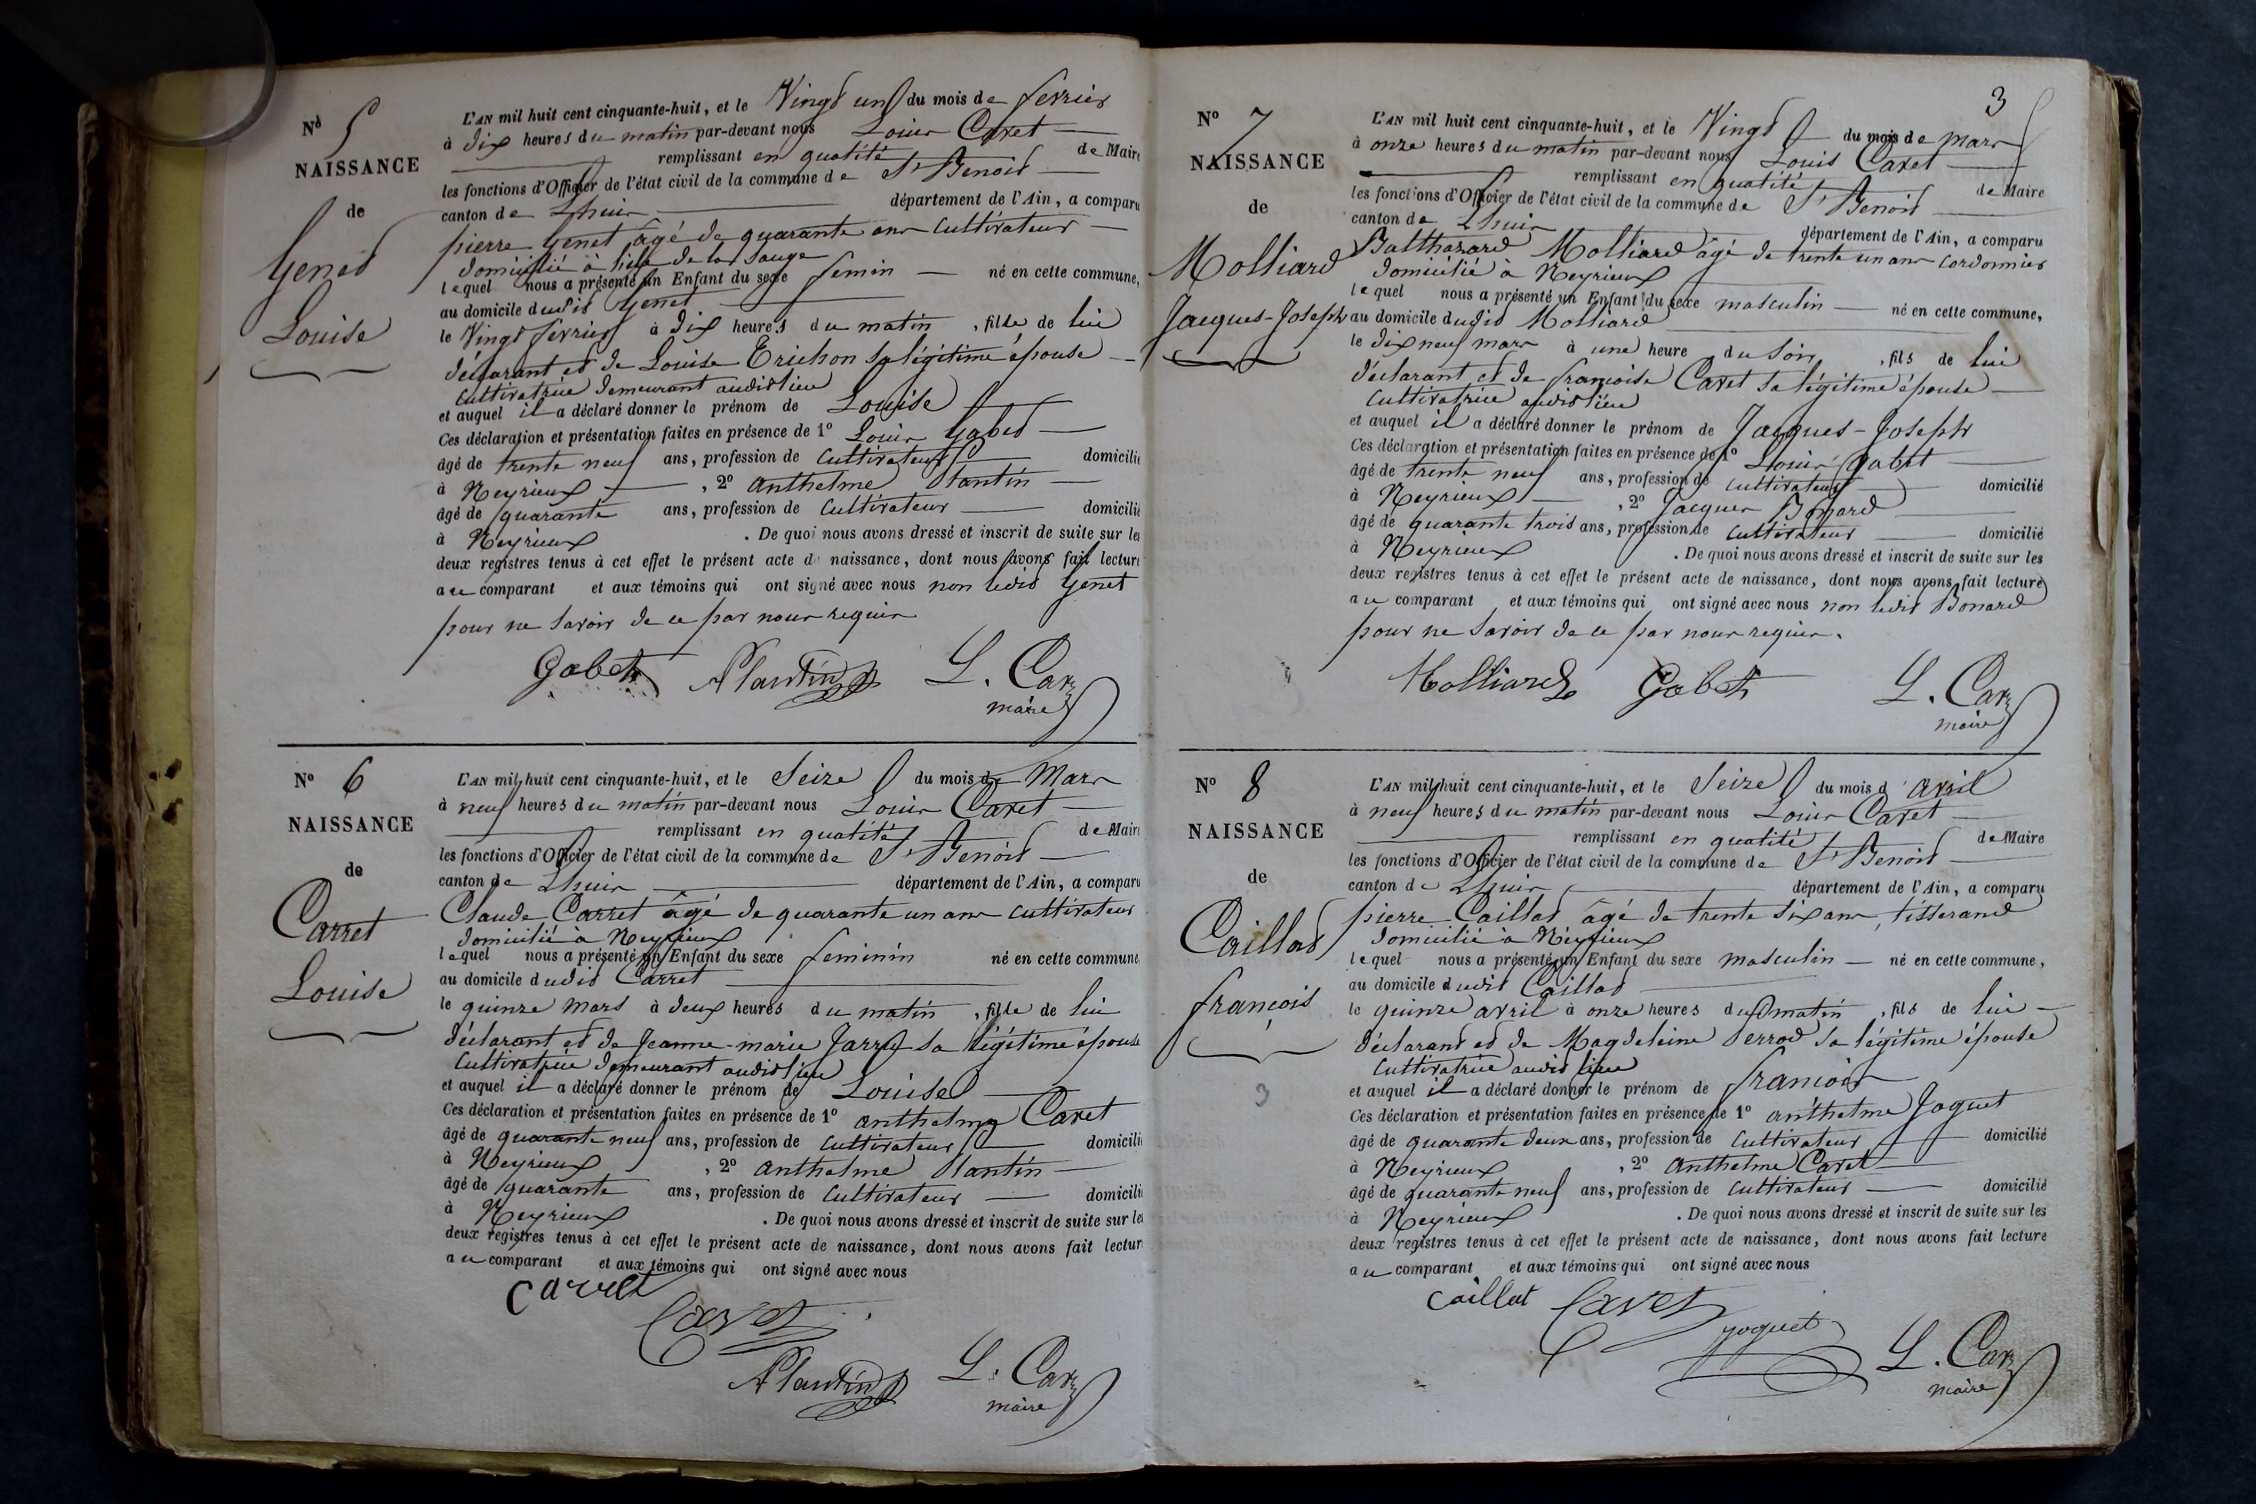 No 5
NAISSANCE
de
Genet
Louise
L'AN mil huit cent cinquante-huit, et le Vingt un du mois de fevrier
à dix heures du matin par-devant nous Louis Caret
remplissant en qualité de Maire
les fonctions d'Officier de l'état civil de la commune de St Benoit
canton de Lhuis département de l'Ain, a comparu
pierre Genet âgé de quarante ans cultivateur
domicilié à
lequel nous a présenté un Enfant du sexe femin né en cette commune,
au domicile dudit Genet
le Vingt fevrier à dix heures du matin, fille de lui
déclarant et de Louise Erichon sa légitime épouse
cultivatrice demeurant audit lieu
et auquel il a déclaré donner le prénom de Louise
Ces déclaration et présentation faites en présence de 1o Louis Gabet
âgé de trente neuf ans, profession de cultivateur domicilié
à Neyrieux, 2o anthelme Plantin
âgé de quarante ans, profession de cultivateur domicilié
à Neyrieux. De quoi nous avons dressé et inscrit de suite sur les
deux registres tenus à cet effet le présent acte de naissance, dont nous avons fait lecture
au comparant et aux témoins qui ont signé avec nous non ledit Genet
pour ne savoir de ce par nous requis
Gabet APlantin L. Car
maire
No 6
NAISSANCE
de
Carret
Louise
L'AN mil huit cent cinquante-huit, et le Seize du mois de Mars
à neuf heures du matin par-devant nous Louis Caret
remplissant en qualité de Maire
les fonctions d'Officier de l'état civil de la commune de St Benoit
canton de Lhuis département de l'Ain, a comparu
Claude Carret âgé de quarante un ans cultivateur
domicilié à Neyrieux
lequel nous a présenté un Enfant du sexe feminin né en cette commune
au domicile dudit Carret
le quinze mars à deux heures du matin, fille de lui
déclarant et de Jeanne-marie Jarry sa légitime épouse
cultivatrice demeurant audit lieu
et auquel il a déclaré donner le prénom de Louise
Ces déclaration et présentation faites en présence de 1o anthelme Caret
âgé de quarante neuf ans, profession de cultivateur domicilié
à Neyrieux, 2o anthelme Plantin
âgé de quarante ans, profession de cultivateur domicilié
à Neyrieux. De quoi nous avons dressé et inscrit de suite sur les
deux registres tenus à cet effet le présent acte de naissance, dont nous avons fait lectur
au comparant et aux témoins qui ont signé avec nous
Carret
Caret
APlantin L. Car
maire
3
No 7
NAISSANCE
de
Molliard
Jacques-Joseph
L'AN mil huit cent cinquante-huit, et le Vingt du mois de mars
à onze heures du matin par-devant nous Louis Caret
remplissant en qualité de Maire
les fonctions d'Officier de l'état civil de la commune de St Benoit
canton de Lhuis département de l'Ain, a comparu
Balthazard Molliard âgé de trente un ans cordonnier
domicilié à Neyrieux
lequel nous a présenté un Enfant du sexe masculin né en cette commune,
au domicile dudit Molliard
le dix neuf mars à une heure du soir, fils de lui
déclarant et de françoise Caret sa légitime épouse
cultivatrice audit lieu
et auquel il a déclaré donner le prénom de Jacques-Joseph
Ces déclaration et présentation faites en présence de 1o Louis Gabet
âgé de trente neuf ans, profession de cultivateur domicilié
à Neyrieux, 2o Jacques Bonard
âgé de quarante trois ans, profession de cultivateur domicilié
à Neyrieux. De quoi nous avons dressé et inscrit de suite sur les
deux registres tenus à cet effet le présent acte de naissance, dont nous avons fait lecture
au comparant et aux témoins qui ont signé avec nous non ledit Bonard
pour ne savoir de ce par nous requis.
Molliard Gabet L. Car
maire
No 8
NAISSANCE
de
Caillat
françois
3
L'AN mil huit cent cinquante-huit, et le Seize du mois d'avril
à neuf heures du matin par-devant nous Louis Caret
remplissant en qualité de Maire
les fonctions d'Officier de l'état civil de la commune de St Benoit
canton de Lhuis département de l'Ain, a comparu
pierre Caillat âgé de trente six ans, tisserand
domicilié à Neyrieux
lequel nous a présenté un Enfant du sexe masculin né en cette commune,
au domicile dudit Caillat
le quinze avril à onze heures du matin, fils de lui
déclarant et de Magdeleine Perrod sa légitime épouse
cultivatrice audit lieu
et auquel il a déclaré donner le prénom de françois
Ces déclaration et présentation faites en présence de 1o anthelme Joguet
âgé de quarante deux ans, profession de cultivateur domicilié
à Neyrieux, 2o anthelme Caret
âgé de quarante neuf ans, profession de cultivateur domicilié
à Neyrieux. De quoi nous avons dressé et inscrit de suite sur les
deux registres tenus à cet effet le présent acte de naissance, dont nous avons fait lecture
au comparant et aux témoins qui ont signé avec nous
Caillat Caret
Joguet L. Car
maire